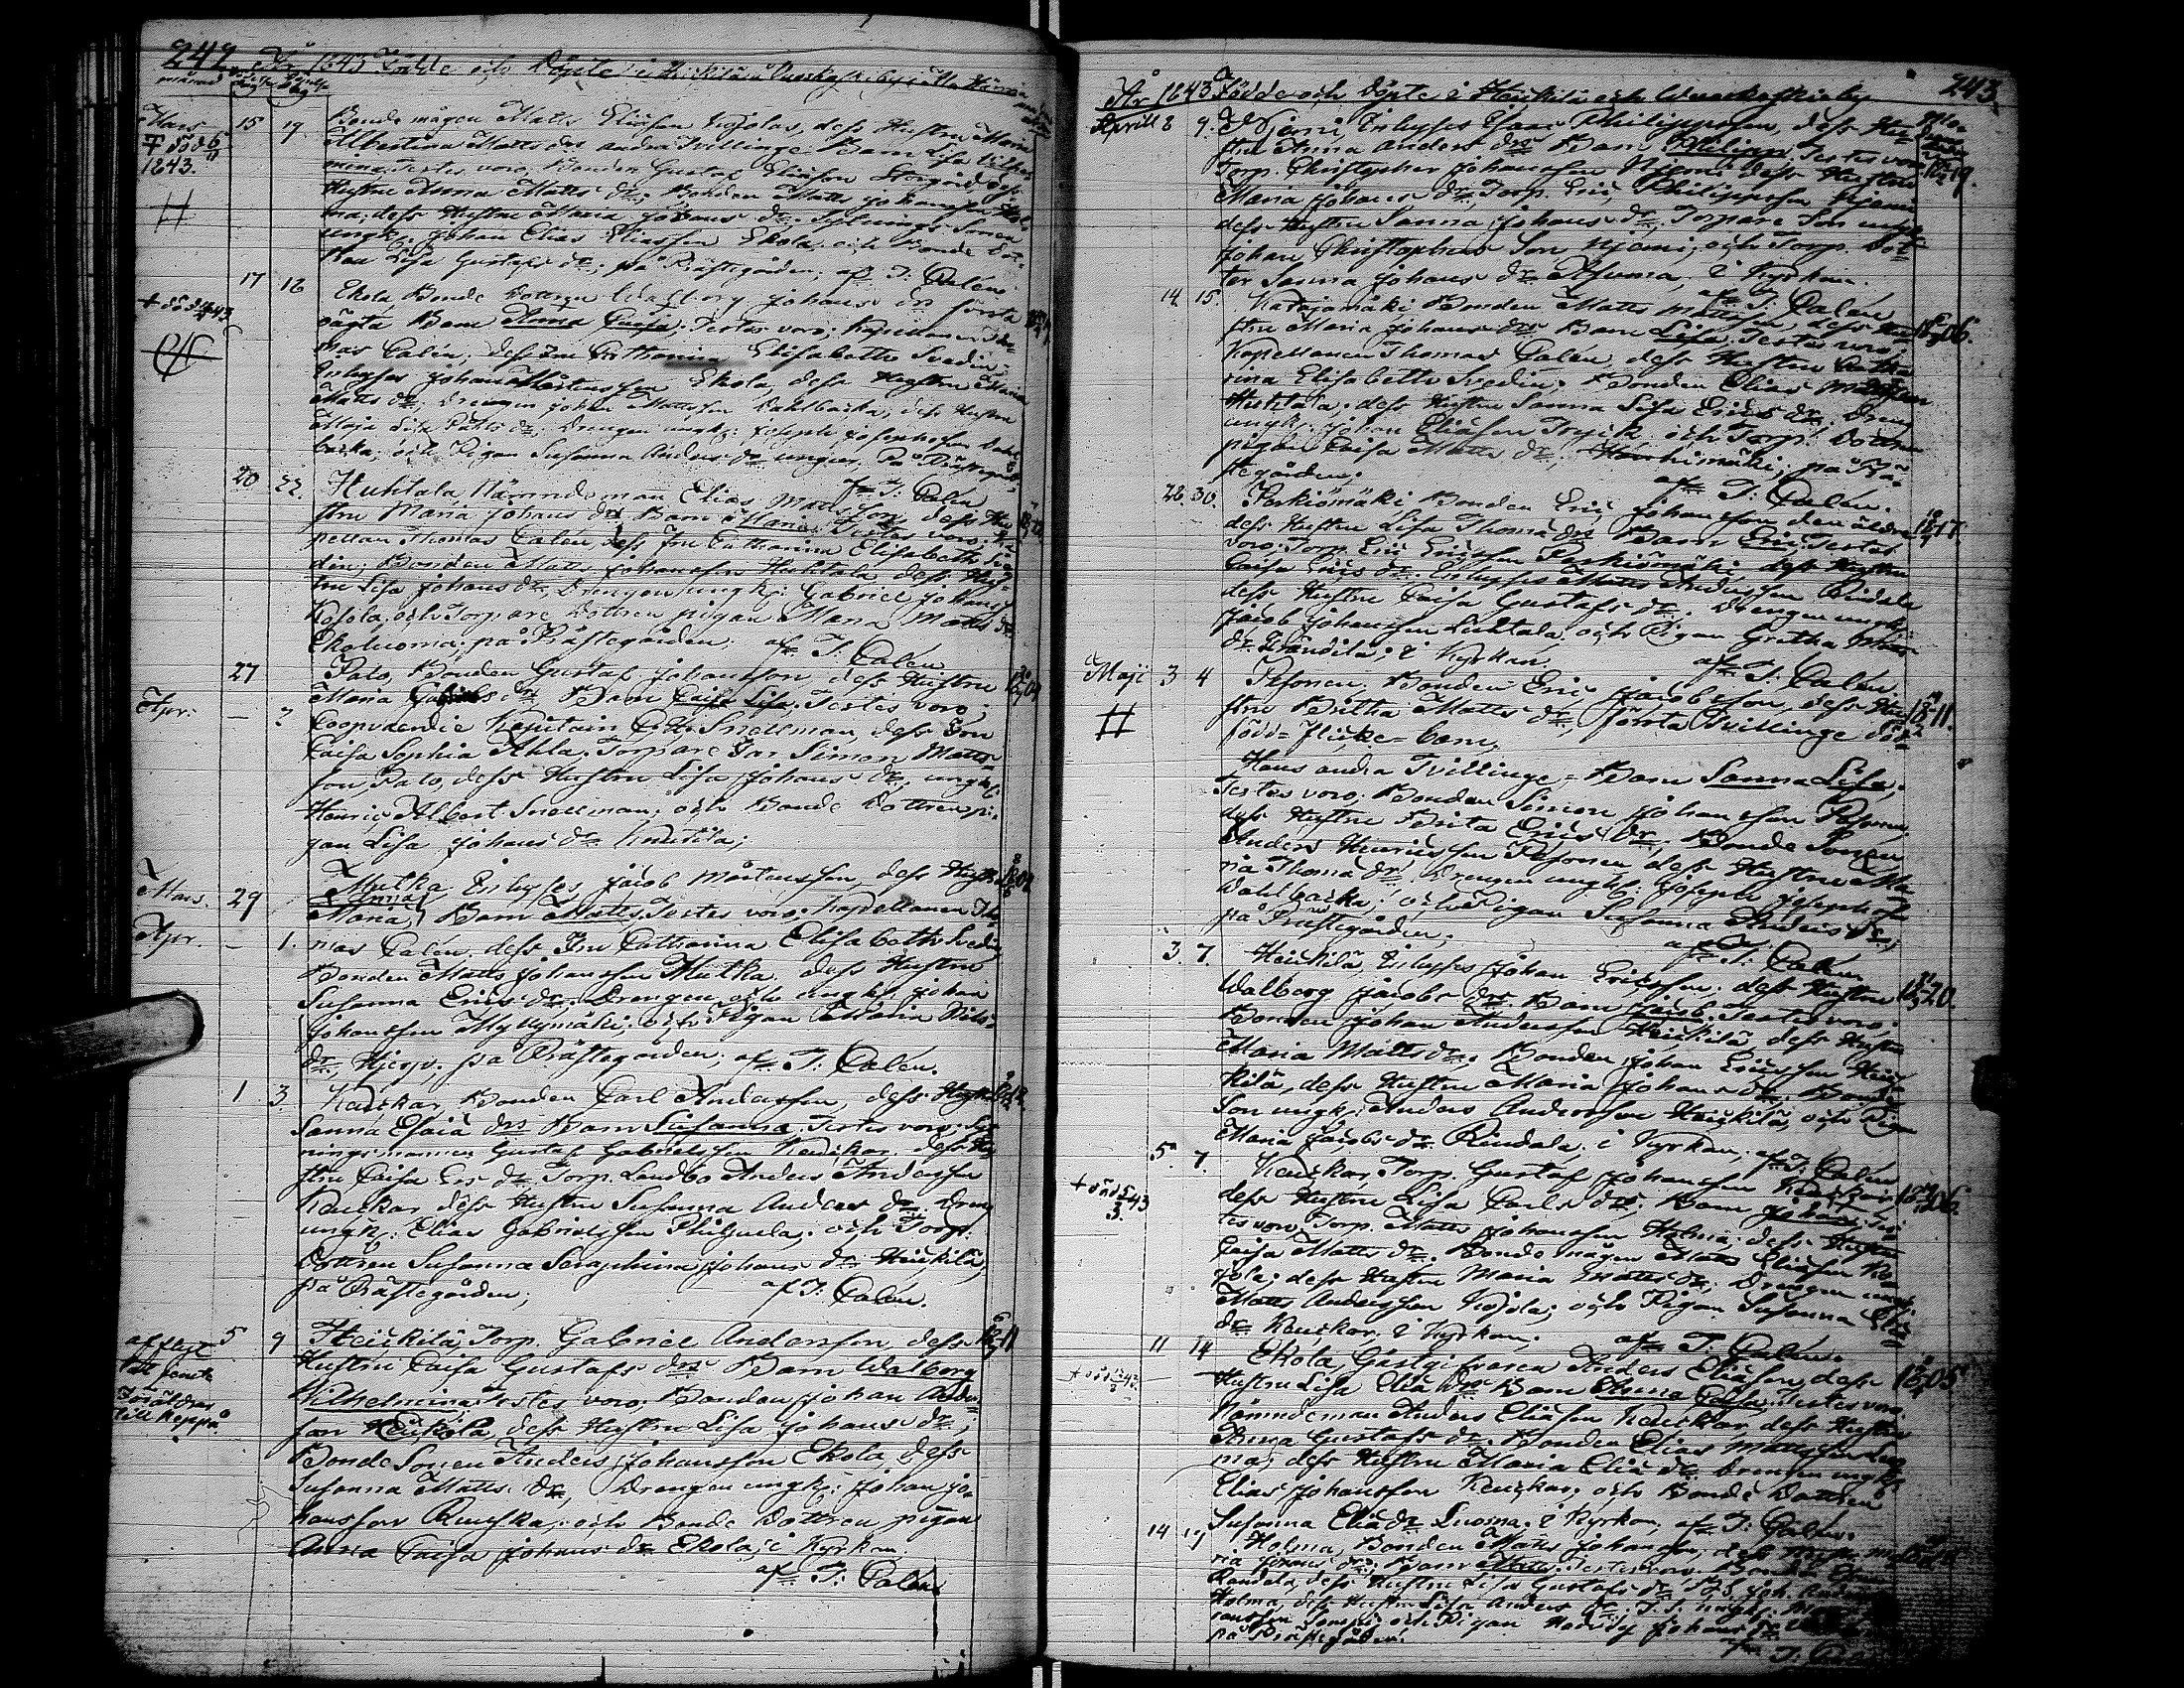 242. År 1843 Födde och Döpte i
Månad
Mars 15 19 Bondemågen Matts Eliæson Kojolas, dess Hustru Maria
† död 6/11 Albertina Matts drs andra Tvillinge Barn Lisa Vilhel-
1843. mina, Testes voro, Bonden Gustaf Eliæson Storgård, dess
Hustru Anna Matts dr; Bonden Matts Johansson Hol-
ma, dess Hustru Maria Johans dr;
ungk. Johan Elias Eliasson Ekola, och Bonde Dot-
tren Lisa Gustafs dr; på Prästegården; af T: Calén.
17 18 Ekola Bonde Dottren Walborg Johans drs första
† död 43 oägta Barn Anna Caisa; Testes voro; Kapellanen Tho-
mas Calén, dess Fru Catharina Elisabeth Svedin
Inhyses Johan Mårtensson Ekola, dess Hustru Maria
Matts dr; Drengen Johan Mattsson Dahlbacka, dess Hustru
Maja Lisa Matts dr; Drengen ungk: Joseph Josephsson Dahl-
backa, och Pigan Susanna Anders dr ungm; På Prästegården;
af T: Calén
20 22. Huhtala, Nämndeman Elias Mattsson, dess Hu-
stru Maria Johans drs Barn Maria Testes voro: Ka-
pellan Thomas Calén, dess Fru Catharina Elisabeth Sve-
din; Bonden Matts Johansson Huhtala, dess Hu-
stru Lisa Johans dr; Drengen ungk: Gabriel Johans
Kojola, och Torpare Dottren pigan Maria Matts dr
Ekoluoma; på Prästegården; af T: Calén
27 Palo, Bonden Gustaf Johansson dess Hustru
Maria Gabriels drs Barn Caisa Lisa. Testes voro;
Apr: — 2 Coopvaerdie Kapitain C. H. Snellman, dess Fru
Caisa Sophia Ahla, Torpare Son Simon Matts-
son Palo, dess Hustru Lisa Johans dr; ungk:
Henric Albert Snellman; och Bonde Dottren pi-
gan Lisa Johans dr Knutila;
Mars. 29 Mutka, Inhyses Jacob Mårtensson, dess Hustru
Anna
Maria, Barn Matts Testes voro: Kapellanen Tho-
Apr. — 1. mas Calén, dess Fru Catharina Elisabeth Svedin
Bonden Matts Johansson Mutka, dess Hustru
Susanna Erics dr; Drengen och ungk: Johan
Johansson Myllymäki; och Pigan Maria Nils
dr. Hjerp; på Prästegården; af T: Calén.
1 3. Keuckar, Bonden Carl Andersson, dess Hustru
Sanna Esaiæ drs Barn Susanna Testes voro: Syt-
ningsmannen Gustaf Gabrielsson Keuckar, dess Hu-
stru Caisa Ers dr; Torp. Landbo Anders Andersson
Keuckar, dess Hustru Susanna Anders dr; Dreng
ungk: Elias Gabrielsson Philguela; och Torp:
Dottren Susanna Seraphina Johans dr Heickilä;
på Prästegården; af T: Calén.
afflyt. 5 9 Heickilä, Torp. Gabriel Andersson, dess
Hustru Caisa Gustafs drs Barn Walborg
Föräldrar Wilhelmina Testes voro: Bonden Johan Anders-
till Keppo son Heickilä, dess Hustru Lisa Johans dr;
Bonde Sonen Anders Johansson Ekola, dess
Susanna Matts dr, Drengen ungk: Johan Jo-
hansson Ruuska; och Bonde Dottren pigan
Anna Caisa Johans dr Ekola; i Kyrkan.
af T: Calén
År 1843 Födde och Döpte i Heickilä och Wuoskoskiby 243.
Aprill 8 9. Njemi, Inhyses Esaias Philippsson, dess Hu-
stru Anna Anders drs Barn Philipp. Testes voro:
Torp. Christopher Johansson Njemi dess Hustru
Maria Johans dr; Torp. Eric Philippsson Njemi
dess Hustru Sanna Johans dr; Torpare Son ungk
Johan Christophers Son Njemi; och Torp. Dot-
ter Sanna Johans dr Asuma, i Kyrkan.
af T: Calén
14. 15. Karjamäki Bonden Matts Mattsson, dess Hu-
stru Maria Johans drs Barn Lisa Testes voro:
Kapellanen Thomas Calén, dess Hustru Catha-
rina Elisabeth Svedin; Bonden Elias Mattsson
Huhtala; dess Hustru Sanna Lisa Erics dr; Dreng
ungk: Johan Eliæson Frejck och Torp. Dottren
pigan Caisa Matts dr; på Prä-
stegården; af T: Calén.
28. 30. Perkiömäki Bonden Eric Johansson den äldre
dess Hustru Lisa Thomæ drs Barn Eric. Testes
voro: Torp. Eric Ericsson Perkiömäki, dess Hustru
Caisa Erics dr. Inhyses Matts Andersson Rindala
dess Hustru Caisa Gustafs dr; Drengen ungk:
Jacob Johansson Luhtala, och Pigan Gretha Matts
dr Frändilä; i Kyrkan. af T: Calén.
Maji 3 4 Pesonen, Bonden Eric Jacobsson, dess Hu-
stru Britha Matts dr, första Tvillinge död-
född flicke-barn,
Hans andra Tvillinge-Barn Sanna Lisa,
Testes voro; Bonden Simon Johansson Pesonen,
dess Hustru Brita Erics dr; Bonde Sonen
Anders Henricsson Pesonen dess Hustru Ma-
ria Thomæ dr; Drengen ungk: Joseph Josephson
Dahlbacka; och Pigan Susanna Anders dr;
på Prästegården; af T: Calén
3. 7. Heickilä, Inhyses Johan Ericsson, dess Hustru
Walborg Jacobs drs Barn Jacob. Testes voro;
Bonden Johan Andersson Heickilä, dess Hustru
Maria Matts dr; Bonden Johan Ericsson Heic-
kilä, dess Hustru Maria Johans dr; Bonde
Son ungk: Anders Andersson Heickilä, och Pigan
Maria Jacobs dr Rindala; i Kyrkan; af T: Calén
5. 7. Keuckar, Torp. Gustaf Johansson Keuckar,
† död 43 dess Hustru Lisa Carls drs; Barn Johan, Tes-
tes voro: Torp. Matts Johansson Holma; dess Hustru
Caisa Matts dr; Bonde mågen Matts Eliæson Ko-
jola; dess Hustru Maria Matts dr; Drengen ungk:
Matts Andersson Kojola; och Pigan Susanna Eliæ
dr Keuckar, i Kyrkan; af T: Calén.
11 14 Ekola, Gästgifvaren Anders Eliæson, dess
† död 43. Hustru Lisa Eliæ drs Barn Anna Caisa, Testes voro:
Nämndeman Anders Eliæson Keuckar, dess Hustru
Anna Gustafs dr. Bonden Elias Mattsson Luo-
ma; dess Hustru Maria Eliæ dr. Drengen ungk:
Elias Johansson Keuckar; och Bonde Dottren
Susanna Eliæ dr Luoma; i Kyrkan, af T: Calén.
14 19 Holma, Bonden Matts Johansson, dess Hustru Ma-
ria Johans drs Barn Matts. Testes voro: Bonden
Randala, dess Hustru Lisa Gustafs dr
Holma, dess Hustru Lisa Anders dr;
och Pigan Johans dr
på Prästegården.
af T: Calén